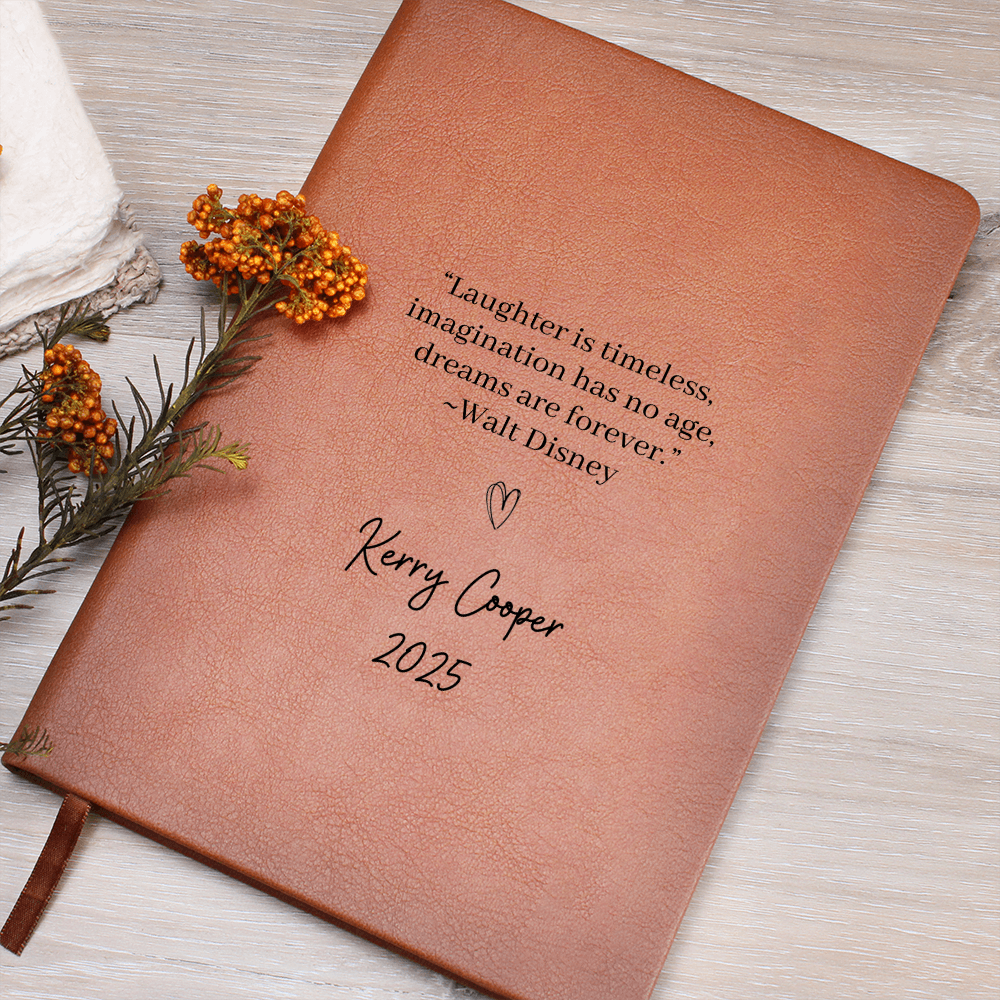 “Laughter is timeless,
imagination has no age,
dreams are forever.”
~Walt Disney
Kerry Cooper
2025